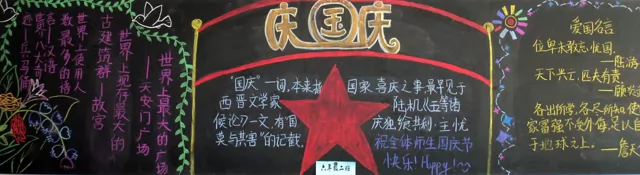 庆国庆
世界上最大的广场
——天安门广场
世界上现存最大的
古建筑群——故宫
世界上使用人
数最多的语
言——汉语
世界八大奇
迹——兵马俑
"国庆"一词,本来指国家喜庆之事最早见于
西晋文学家陆机《五等诸
侯论》一文,有"国庆独飨其利,主忧
莫与其害"的记载.
祝全体师生国庆节
快乐! Happy!
六年级二班
爱国名言
位卑未敢忘忧国.
——陆游
天下兴亡,匹夫有责.
——顾炎
各出所学,各尽所知,使
家富强不受外侮,足以自
于地球之上.——詹天